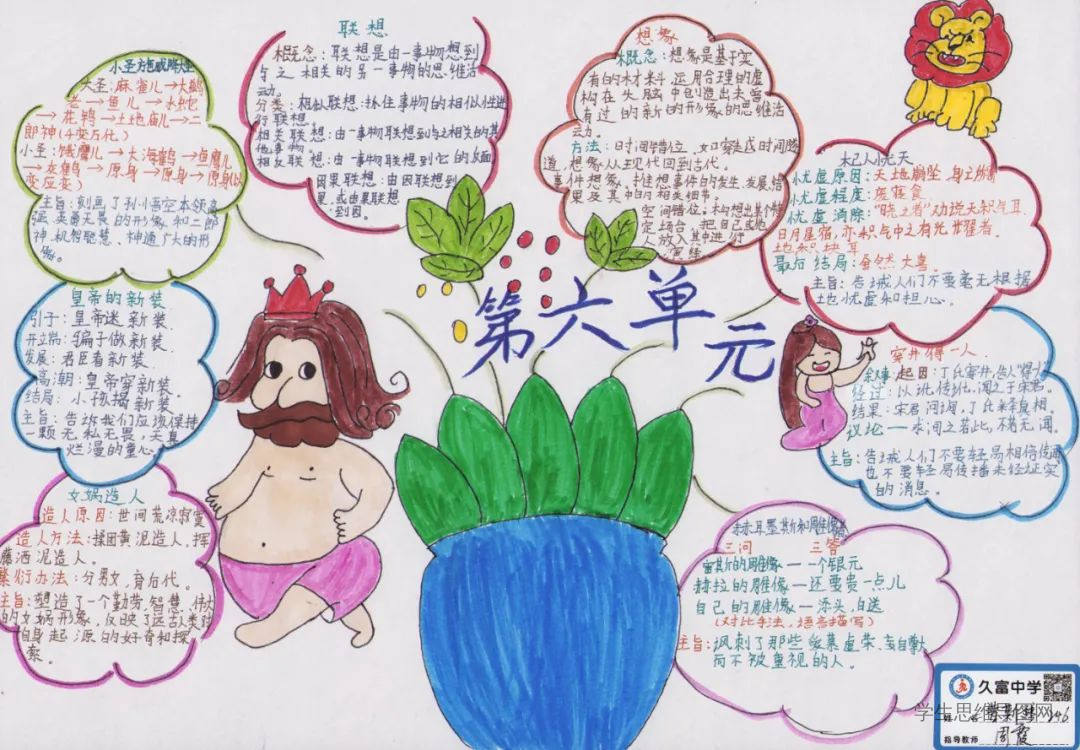 第六单元
小圣施威降大圣
大圣:麻雀儿→大鹚
老→鱼儿→水蛇
→花鸨→土地庙儿→二
郎神(七变万化)
小圣:饿鹰儿→大海鹤→鱼鹰儿
→灰鹤→原身→原身→原身以
变应变)
主旨:刻画了孙小悟空本领高
强、英勇无畏的形象和二郎
神机智聪慧、神通广大的形
象。
联想
概念:联想是由一事物想到
与之相关的另一事物的思维活
动。
分类:相似联想:抓住事物的相似性进
行联想。
相关联想:由一事物联想到与之相关的其
他事物。
相反联想:由一事物联想到它的反面
因果联想:由因联想到
果,或由果联想
到因。
想象
概念:想象是基于实
有的材料,运用合理的虚
构在头脑中创造出未曾
有过的新的形象的思维活
动。
方法:时间错位,如穿越时间隧
道,想象从现代回到古代。
事件想象。抓住想事件的发生、发展、结
果及其中的相关细节。
空间错位,构想出某个特
定场合,把自己或他
人放入其中进行
演练
杞人忧天
忧虑原因:天地崩坠,身立所寄
忧虑程度:废寝食
忧虑消除:“晓之者”劝说天积气耳
日月星宿,亦积气中之有光耀者。
地积块耳
最后结局:舍然大喜。
主旨:告诫人们不要毫无根据
地忧虑和担心。
皇帝的新装
引子:皇帝迷新装
开端:骗子做新装。
发展:君臣看新装。
高潮:皇帝穿新装
结局:小孩揭新装
主旨:告诉我们应该保持
一颗无私无畏,天真
烂漫的童心
穿井得一人
叙事:起因:丁氏穿井,告人“得人”
经过:以讹传讹,闻之于宋君。
结果:宋君问询,丁氏释真相。
议论—求闻之若此,不若无闻。
主旨:告诫人们不要轻易相信传闻
也不要轻易传播未经证实
的消息。
女娲造人
造人原因:世间荒凉寂寞
造人方法:揉团黄泥造人,挥
藤洒泥造人。
繁衍办法:分男女,育后代。
主旨:塑造了一个勤劳,智慧,伟大
的女娲形象,反映了远古人类对
自身起源的好奇和探
索。
赫耳墨斯和雕像者
三问 三答
宙斯的雕像—一个银元
赫拉的雕像—还要贵一点儿
自己的雕像—添头,白送
(对比手法,语言描写)
主旨:讽刺了那些爱慕虚荣、妄自尊大
而不被重视的人。
久富中学
学生思维导图网
指导教师 周霞